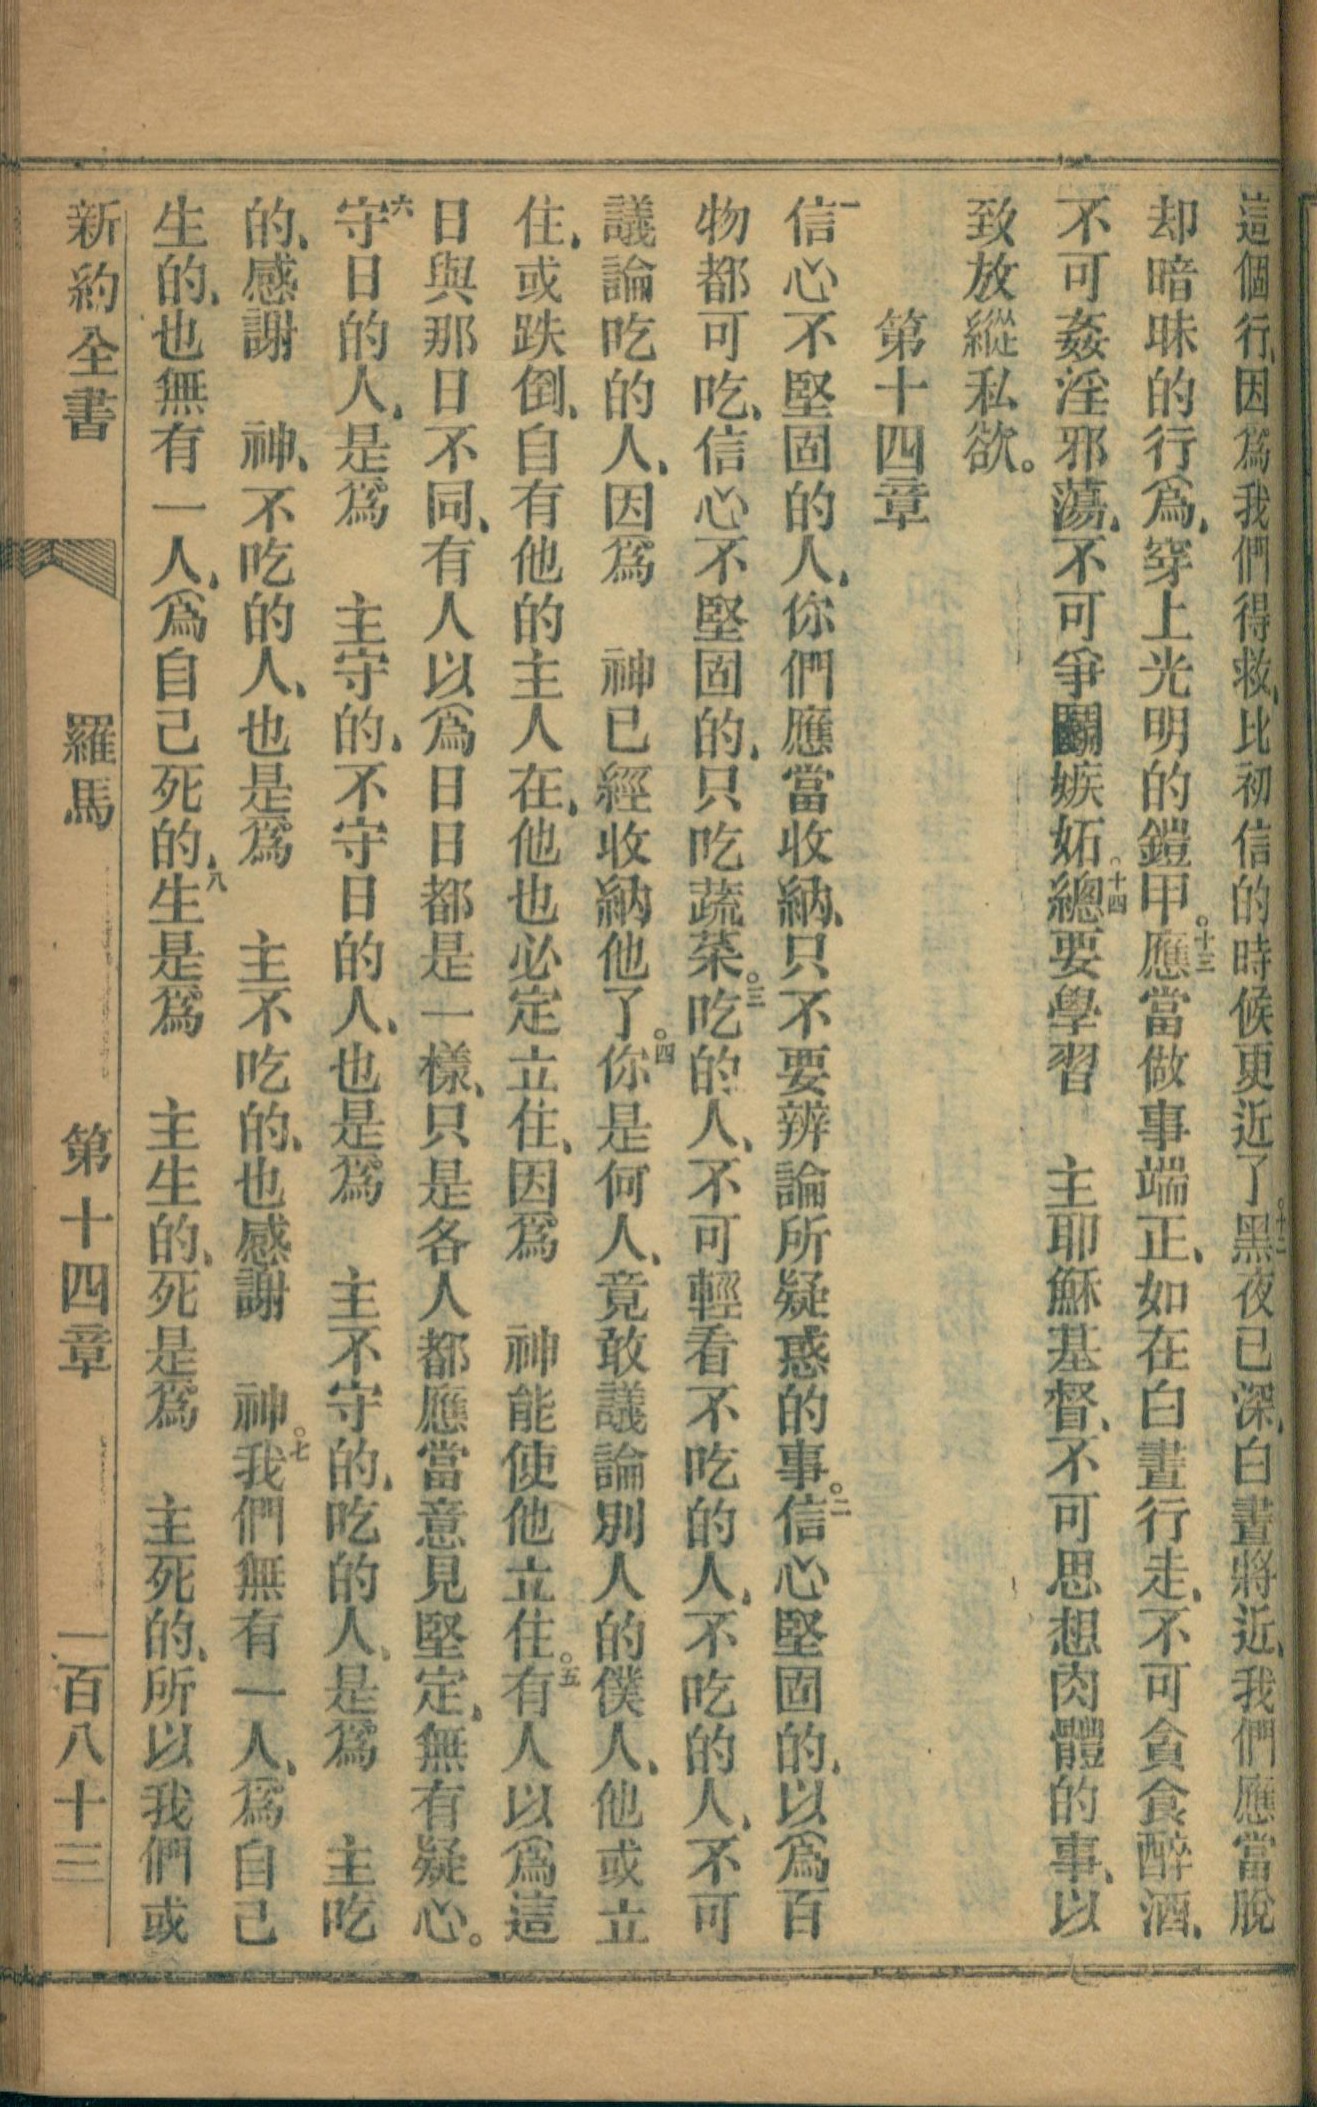 這個行、因爲我們得救、比初信的時候更近了。十二黑夜已深、白晝將近、我們應當脫
却暗昧的行爲、穿上光明的鎧甲。十三應當做事端正、如在白晝行走、不可貪食醉酒、
不可姦淫邪蕩、不可爭鬬嫉妬。十四總要學習　主耶穌基督、不可思想肉體的事、以
致放縱私欲。
第十四章
一信心不堅固的人、你們應當收納、只不要辨論所疑惑的事。二信心堅固的、以爲百
物都可吃、信心不堅固的、只吃蔬菜。三吃的人、不可輕看不吃的人、不吃的人、不可
議論吃的人、因爲　神已經收納他了。四你是何人、竟敢議論別人的僕人、他或立
住、或跌倒、自有他的主人在、他也必定立住、因爲　神能使他立住。五有人以爲這
日與那日不同、有人以爲日日都是一樣、只是各人都應當意見堅定、無有疑心。
六守日的人、是爲　主守的、不守日的人、也是爲　主不守的、吃的人、是爲　主吃
的、感謝　神、不吃的人、也是爲　主不吃的、也感謝　神。七我們無有一人、爲自己
生的、也無有一人、爲自己死的、八生是爲　主生的、死是爲　主死的、所以我們或
新約全書　羅馬　第十四章　一百八十三